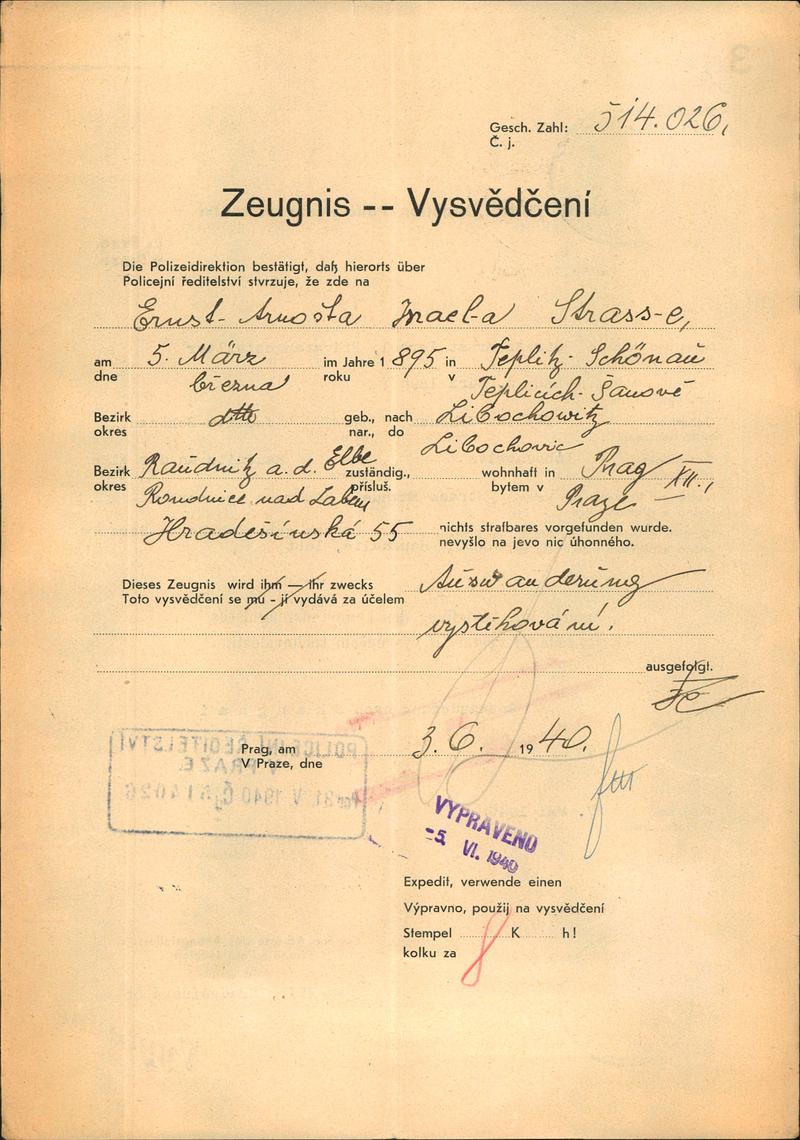 Gesch. Zahl: 514.026,
Č. j.
Zeugnis -- Vysvědčení
Die Polizeidirektion bestätigt, daß hierorts über
Policejní ředitelství stvrzuje, že zde na
Ernst- Arnošta Israel-a Strass-e,
am 5. März im Jahre 1 895 in Teplitz-Schönau
dne března roku v Teplicích-Šanově
Bezirk dtto geb., nach Libochowitz
okres nar., do Libochovic
Bezirk Raudnitz a. d. Elbe zuständig., wohnhaft in Prag XII.,
okres Roudnice nad Labem přísluš. bytem v Praze
Hradešínská 55 nichts strafbares vorgefunden wurde.
nevyšlo na jevo nic úhonného.
Dieses Zeugnis wird ihm — ihr zwecks Auswanderung
Toto vysvědčení se mu - jí vydává za účelem
vystěhování.
ausgefolgt.
Prag, am 3. 6. 19 40.
V Praze, dne
POLICEJNÍ ŘEDITELSTVÍ
V PRAZE.
31. V 1940 Čj. 514026
VYPRAVENO
-5. VI. 1940
Expedit, verwende einen
Výpravno, použij na vysvědčení
Stempel 8 K h!
kolku za